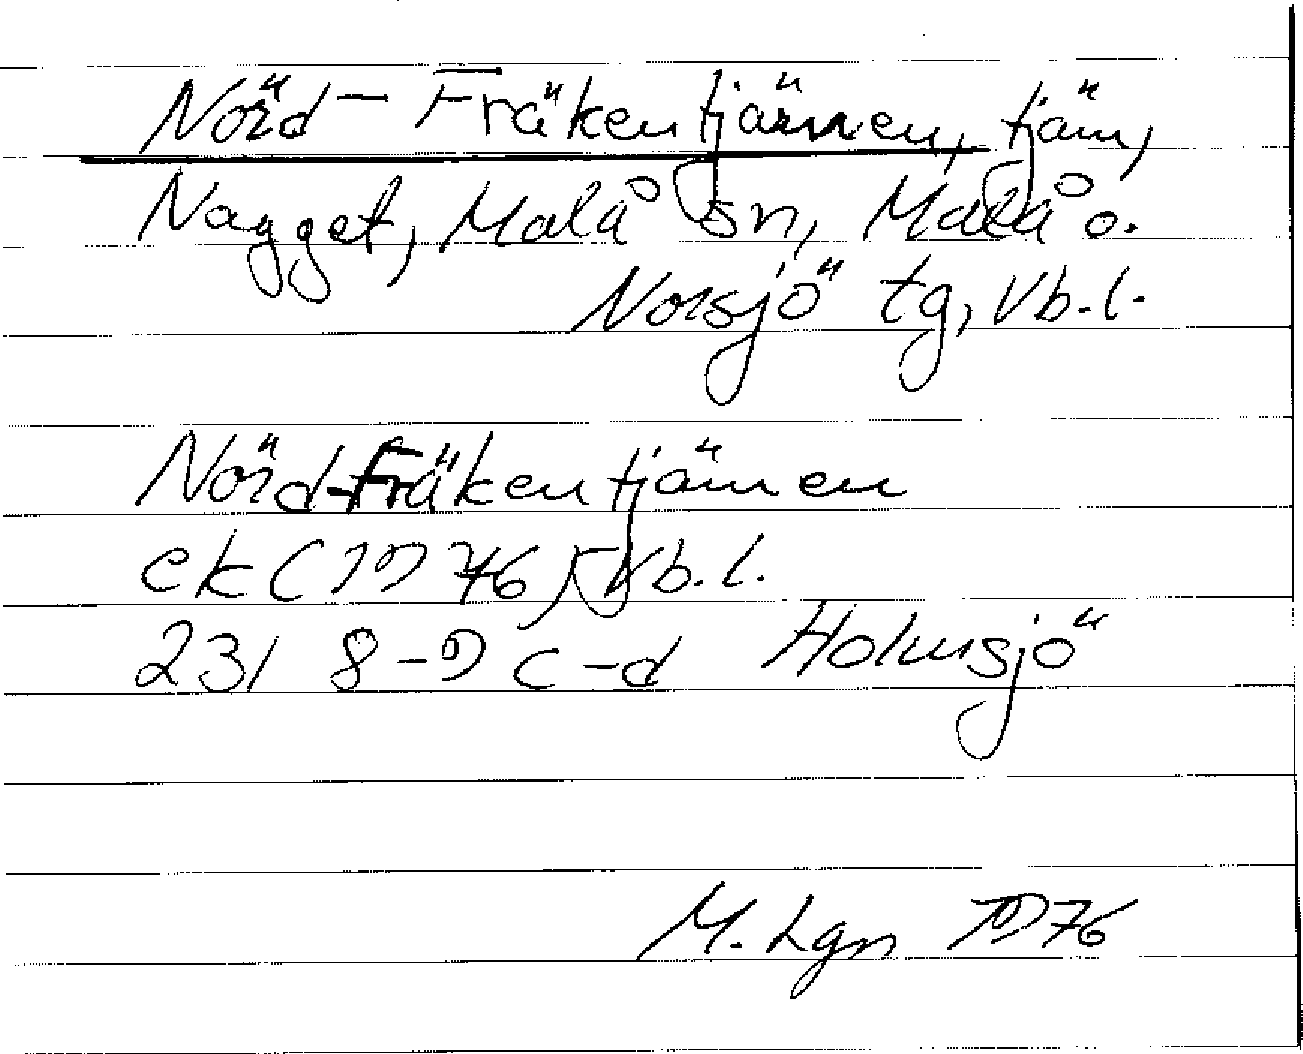 Nörd-Fräkentjärnen, tjärn,
Nagget, Malå sn, Malå o.
Norsjö tg, Vb.l.
Nörd-Fräkentjärnen
ek (1976) Vb.l.
23I 8-9 c-d Holmsjö
M. Lgn 1976